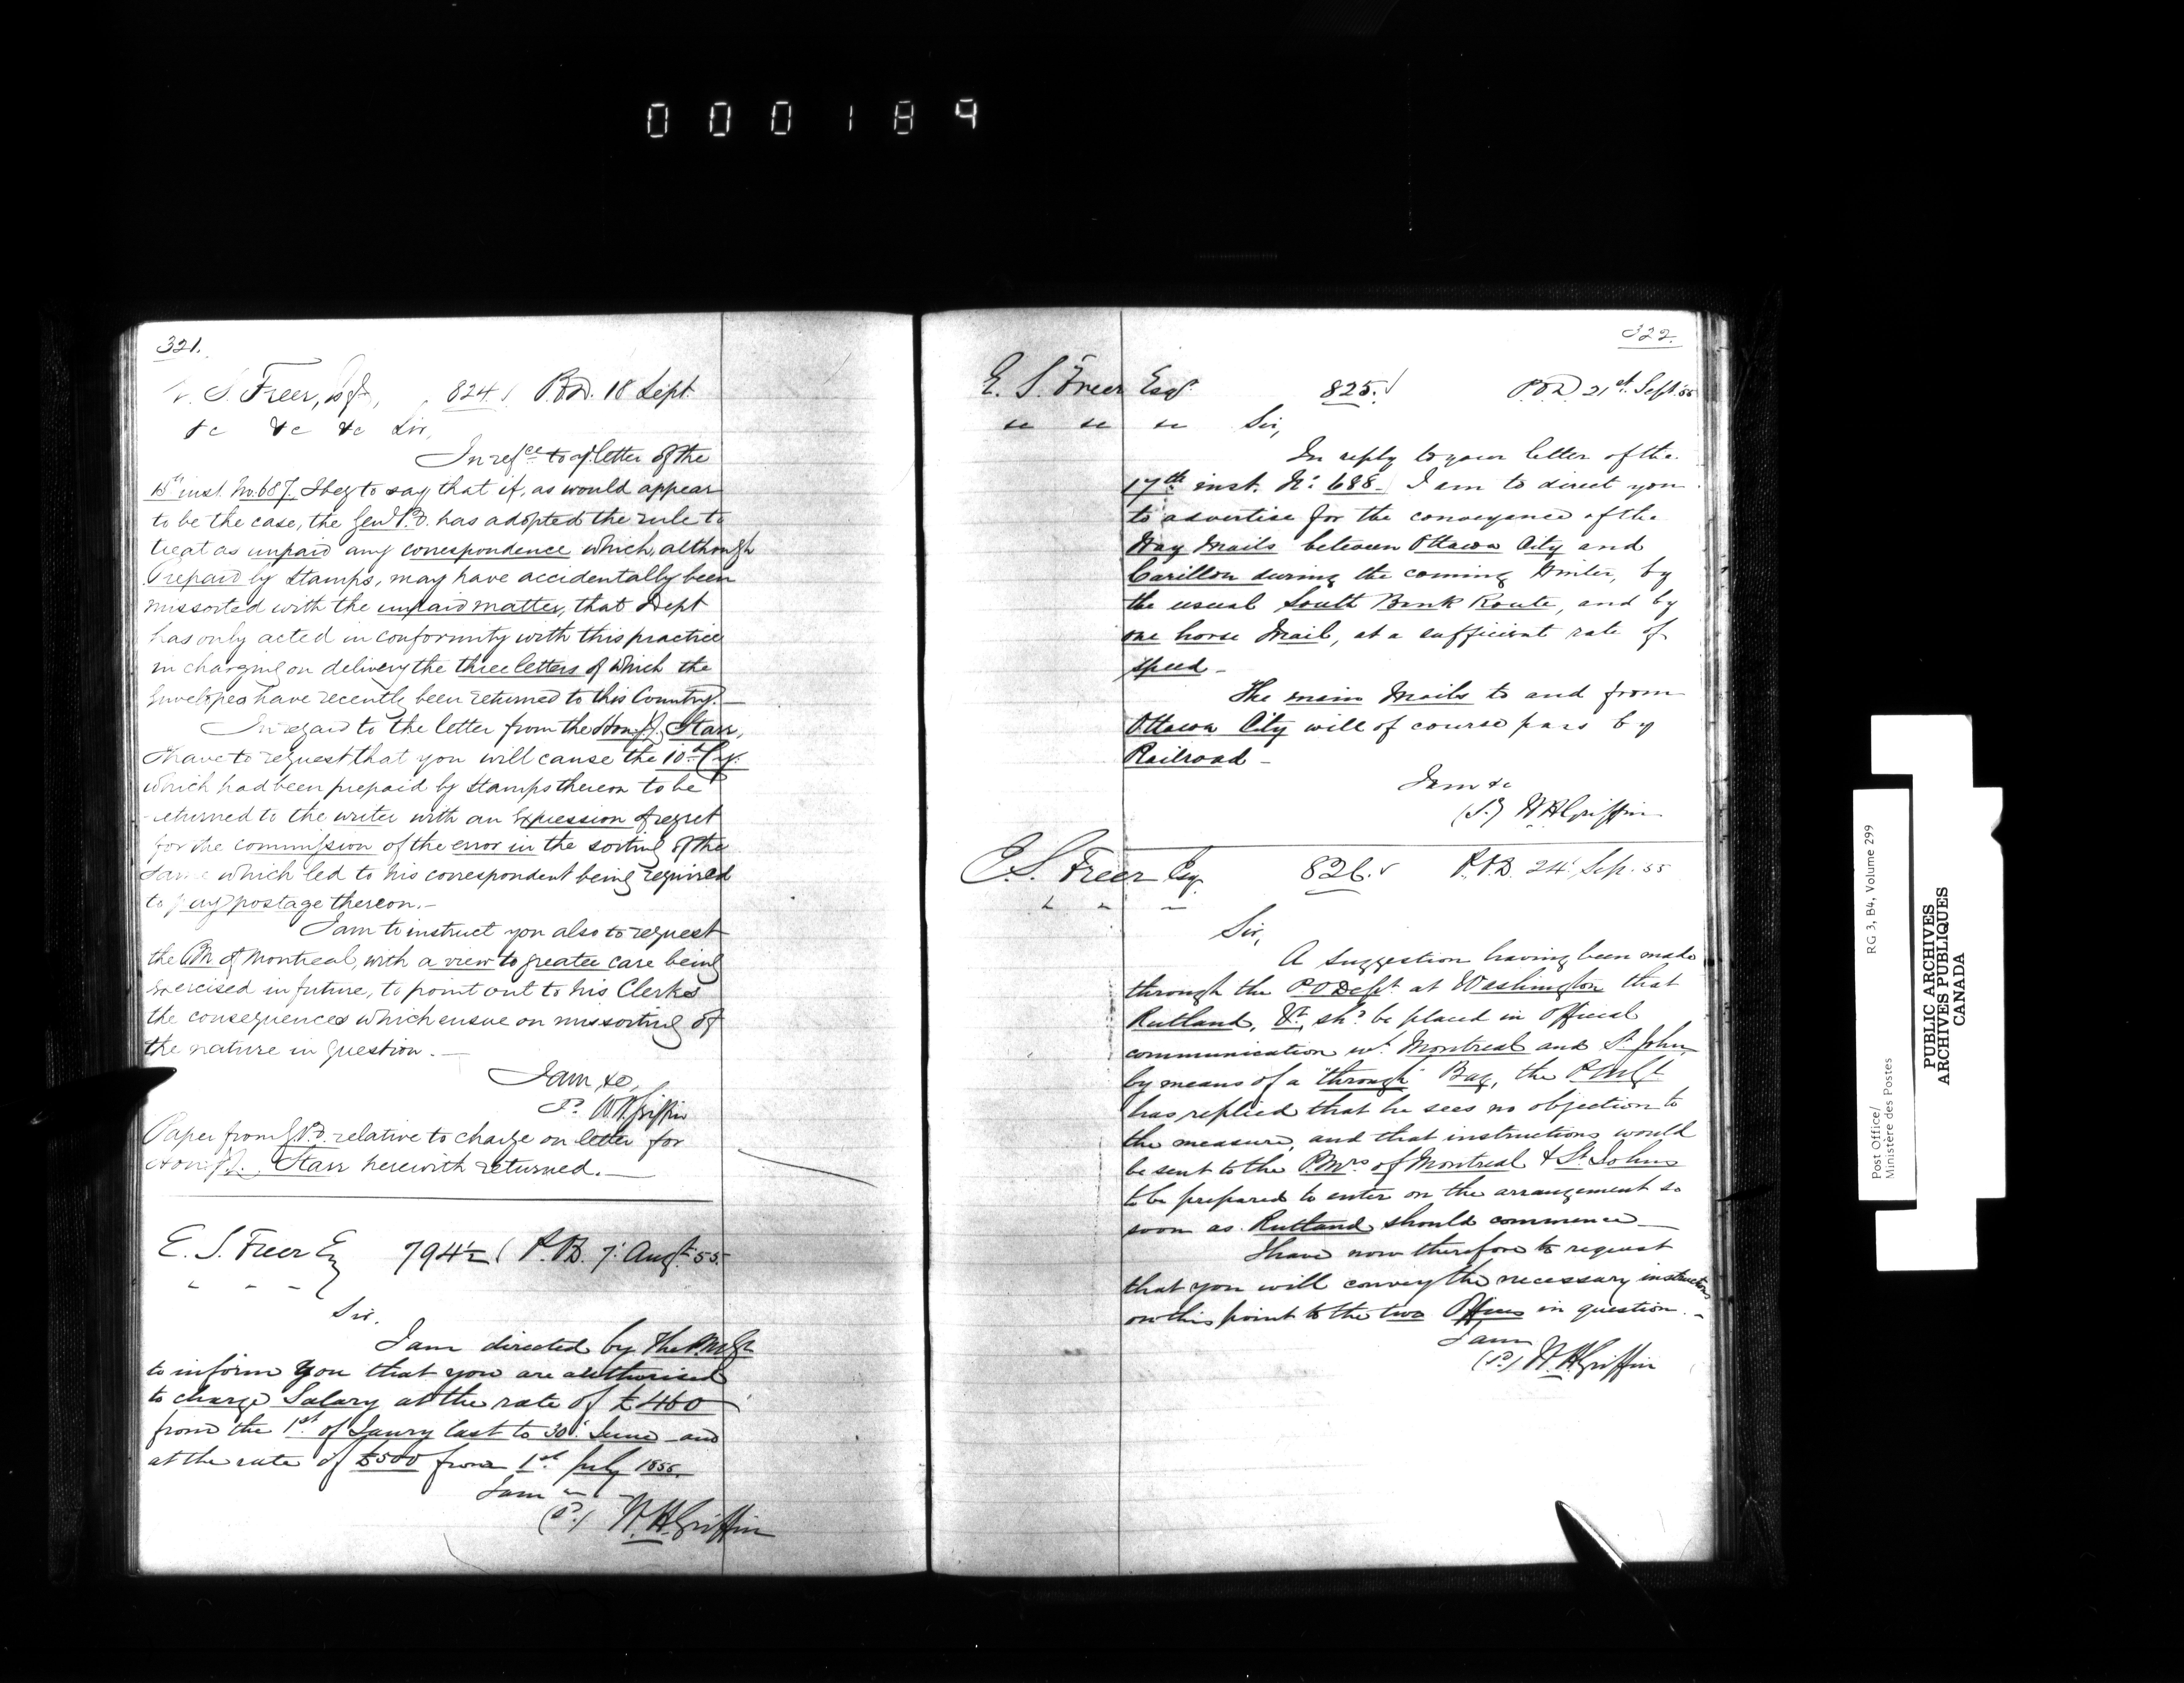 000189
321.
E. S. Freer, Esqr, 824 P.O.D. 18 Sept.
&c &c &c Sir,
In refce to yr letter of the
15th inst. No. 687. I beg to say that if, as would appear
to be the case, the Genl P.O. has adopted the rule to
treat as unpaid any correspondence which, although
Prepaid by Stamps, may have accidentally been
missorted with the unpaid matter, that Dept
has only acted in conformity with this practice
in charging on delivery the three letters of which the
Envelopes have recently been returned to this Country.—
In regard to the letter from the Hon. J. Starr,
I have to request that you will cause the 10d Cy.
which had been prepaid by Stamps thereon to be
returned to the writer with an expression of regret
for the commission of the error in the sorting of the
same which led to his correspondent being required
to pay postage thereon.—
I am to instruct you also to request
the PM of Montreal, with a view to greater care being
exercised in future, to point out to his Clerks
the consequences which ensue on missorting of
the nature in question.—
I am, &c,
Sd. W.H. Griffin
Paper from G.P.O. relative to charge on letter for
Starr herewith returned.—
E. S. Freer Esq 794½ P.O.D. 7. Augt 55.
Sir.
I am directed by the P.M.Gl
to inform you that you are authorised
to charge Salary at the rate of £460
from the 1st of Janry last to 30. June and
at the rate of £500 from 1st July 1855.
I am
(Sd.) W. H. Griffin
322.
E. S. Freer Esqr. 825. P.O.D 21st Sept. 55
&c &c &c Sir,
In reply to your letter of the
17th inst. No. 688. I am to direct you
to advertise for the conveyance of the
Way Mails between Ottawa City and
Carillon during the coming Winter, by
the usual South Bank Route, and by
one horse Mail, at a sufficient rate of
speed—
The main Mails to and from
Ottawa City will of course pass by
Railroad—
I am &c
(Sd.) W H Griffin
E. S. Freer Esq. 826. P.O.D. 24 Sep. 55
Sir,
A suggestion having been made
through the P O Dept at Washington that
Rutland, Vt, shd be placed in Official
communication wt Montreal and St Johns
by means of a "through" Bag, the P M Gl
has replied that he sees no objection to
the measure, and that instructions would
be sent to the P.Mrs of Montreal & St Johns
to be prepared to enter on the arrangement so
soon as Rutland should commence—
I have now therefore to request
that you will convey the necessary instructions
on this point to the two Offices in question.—
I am
(Sd.) W. H. Griffin
Post Office/
Ministère des Postes
RG 3, B4, Volume 299
PUBLIC ARCHIVES
ARCHIVES PUBLIQUES
CANADA